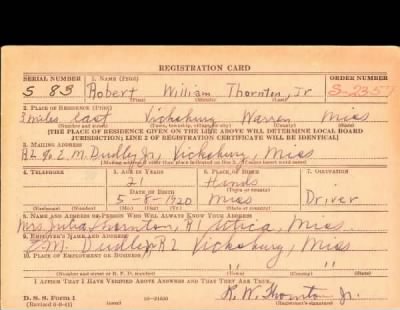 REGISTRATION CARD
SERIAL NUMBER 1. NAME (Print) ORDER NUMBER
S 83 Robert William Thornton, Jr S-2357
(First) (Middle) (Last)
2. PLACE OF RESIDENCE (Print)
3 miles east Vicksburg Warren Miss
(Number and street) (Town, township, village, or city) (County) (State)
[THE PLACE OF RESIDENCE GIVEN ON THE LINE ABOVE WILL DETERMINE LOCAL BOARD
JURISDICTION; LINE 2 OF REGISTRATION CERTIFICATE WILL BE IDENTICAL]
3. MAILING ADDRESS
R2 % E. M. Dudley Jr, Vicksburg, Miss
[Mailing address if other than place indicated on line 2. If same insert word same]
4. TELEPHONE 5. AGE IN YEARS 6. PLACE OF BIRTH 7. OCCUPATION
21 Hinds
DATE OF BIRTH (Town or county)
5-8-1920 Miss Driver
(State or country)
8. NAME AND ADDRESS OF PERSON WHO WILL ALWAYS KNOW YOUR ADDRESS
Mrs. Julia Thornton, R1 Utica, Miss.
9. EMPLOYER'S NAME AND ADDRESS
E. M. Dudley R2 Vicksburg, Miss
10. PLACE OF EMPLOYMENT OR BUSINESS
" "
(Number and street or R. F. D. number) (Town) (County) (State)
I AFFIRM THAT I HAVE VERIFIED ABOVE ANSWERS AND THAT THEY ARE TRUE.
D. S. S. Form 1 R. W. Thornton Jr.
(Registrant's signature)